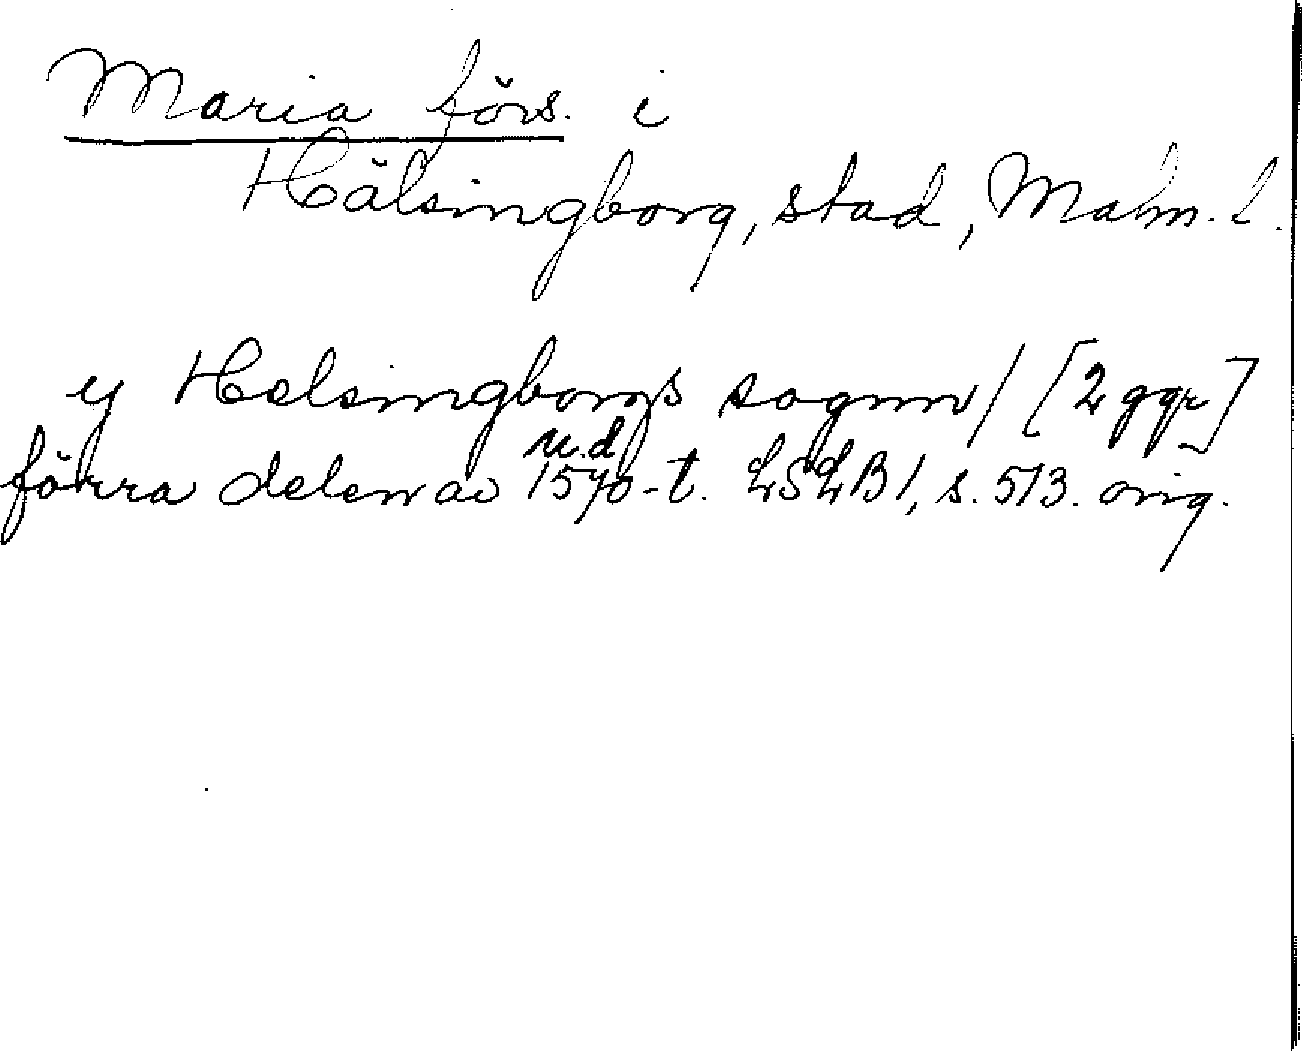 Maria förs. i
Hälsingborg, stad, Malm. l.
y Helsingborgs sognn/ [2 ggr]
u.d
förra delen av 1570-t. LSLB1, s. 513. orig.